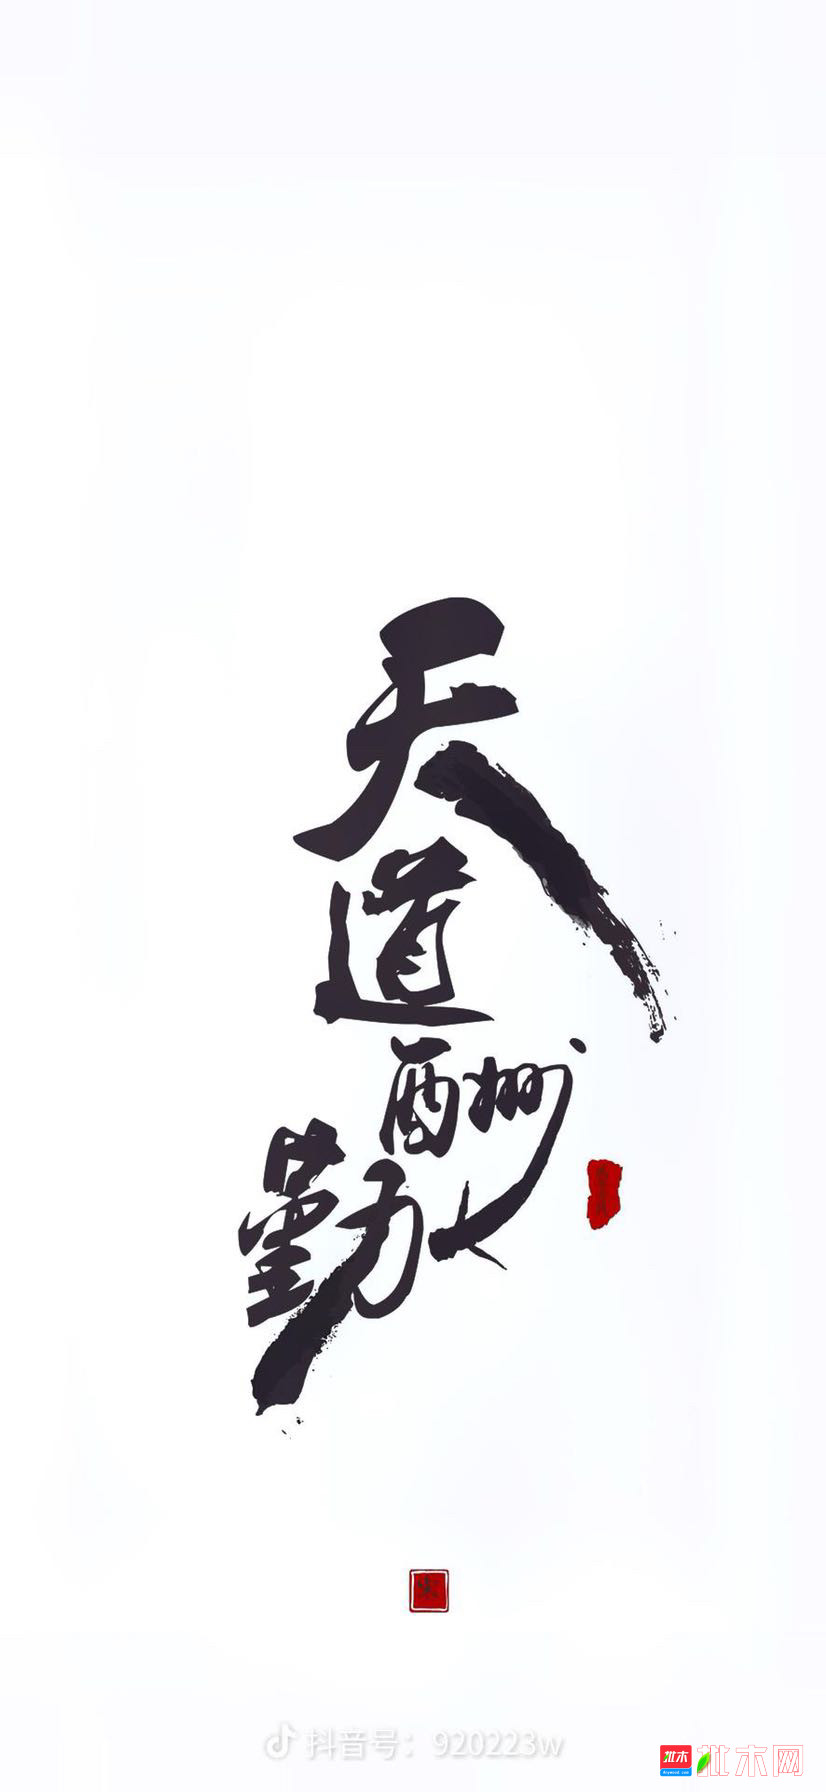 天道酬勤
抖音号：920223w
批木网
批木网